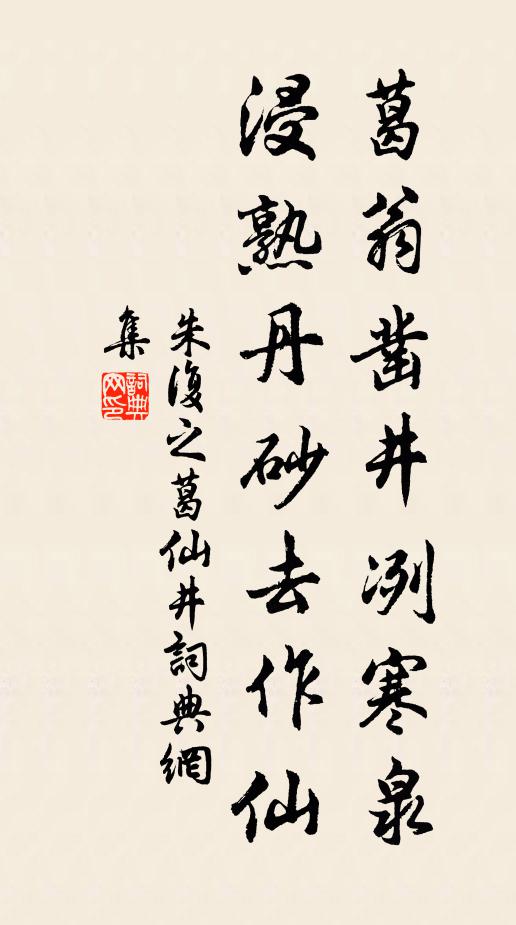 葛翁凿井冽寒泉
浸熟丹砂去作仙
朱復之葛仙井詞典網
集
詞典
网印